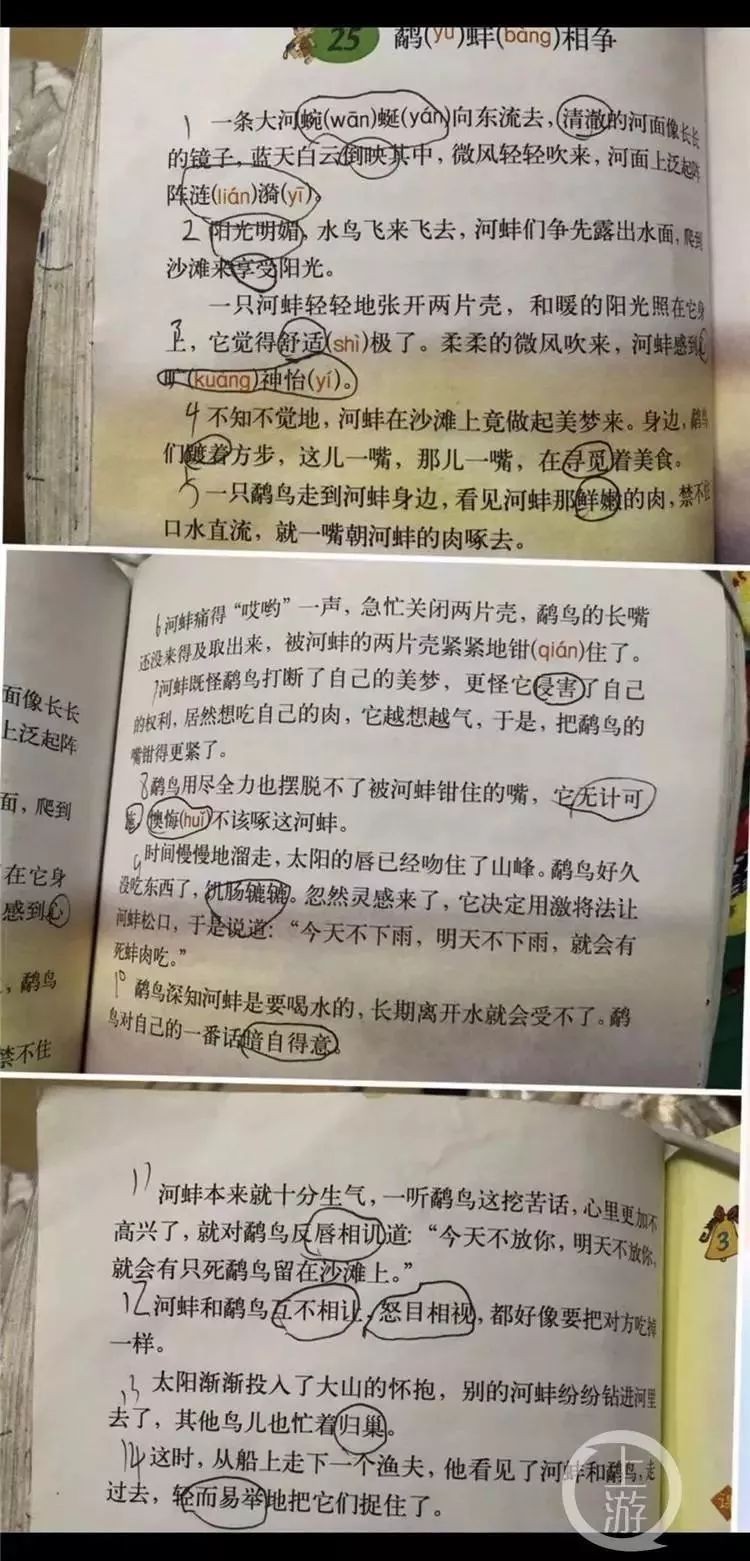 25 鹬(yù)蚌(bàng)相争
1 一条大河蜿(wān)蜒(yán)向东流去，清澈的河面像长长
的镜子，蓝天白云倒映其中，微风轻轻吹来，河面上泛起阵
阵涟(lián)漪(yī)。
2 阳光明媚，水鸟飞来飞去，河蚌们争先露出水面，爬到
沙滩来享受阳光。
一只河蚌轻轻地张开两片壳，和暖的阳光照在它身
3 上，它觉得舒适(shì)极了。柔柔的微风吹来，河蚌感到心
旷(kuàng)神怡(yí)。
4 不知不觉地，河蚌在沙滩上竟做起美梦来。身边，鹬鸟
们踱着方步，这儿一嘴，那儿一嘴，在寻觅着美食。
5 一只鹬鸟走到河蚌身边，看见河蚌那鲜嫩的肉，禁不住
口水直流，就一嘴朝河蚌的肉啄去。
6 河蚌痛得“哎哟”一声，急忙关闭两片壳，鹬鸟的长嘴
还没来得及取出来，被河蚌的两片壳紧紧地钳(qián)住了。
7 河蚌既怪鹬鸟打断了自己的美梦，更怪它侵害了自己
的权利，居然想吃自己的肉，它越想越气，于是，把鹬鸟的
嘴钳得更紧了。
8 鹬鸟用尽全力也摆脱不了被河蚌钳住的嘴，它无计可
施，懊悔(huǐ)不该啄这河蚌。
9 时间慢慢地溜走，太阳的唇已经吻住了山峰。鹬鸟好久
没吃东西了，饥肠辘辘。忽然灵感来了，它决定用激将法让
河蚌松口，于是说道：“今天不下雨，明天不下雨，就会有
死蚌肉吃。”
10 鹬鸟深知河蚌是要喝水的，长期离开水就会受不了。鹬
鸟对自己的一番话暗自得意。
面像长长
上泛起阵
面，爬到
在它身
感到心
，鹬鸟
禁不住
11 河蚌本来就十分生气，一听鹬鸟这挖苦话，心里更加不
高兴了，就对鹬鸟反唇相讥道：“今天不放你，明天不放你，
就会有只死鹬鸟留在沙滩上。”
12 河蚌和鹬鸟互不相让，怒目相视，都好像要把对方吃掉
一样。
13 太阳渐渐投入了大山的怀抱，别的河蚌纷纷钻进河里
去了，其他鸟儿也忙着归巢。
14 这时，从船上走下一个渔夫，他看见了河蚌和鹬鸟，走
过去，轻而易举地把它们捉住了。
3
上游